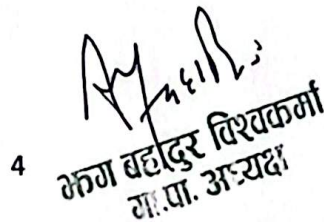 4
भग बहादुर विश्वकर्मा
गा.पा. अध्यक्ष